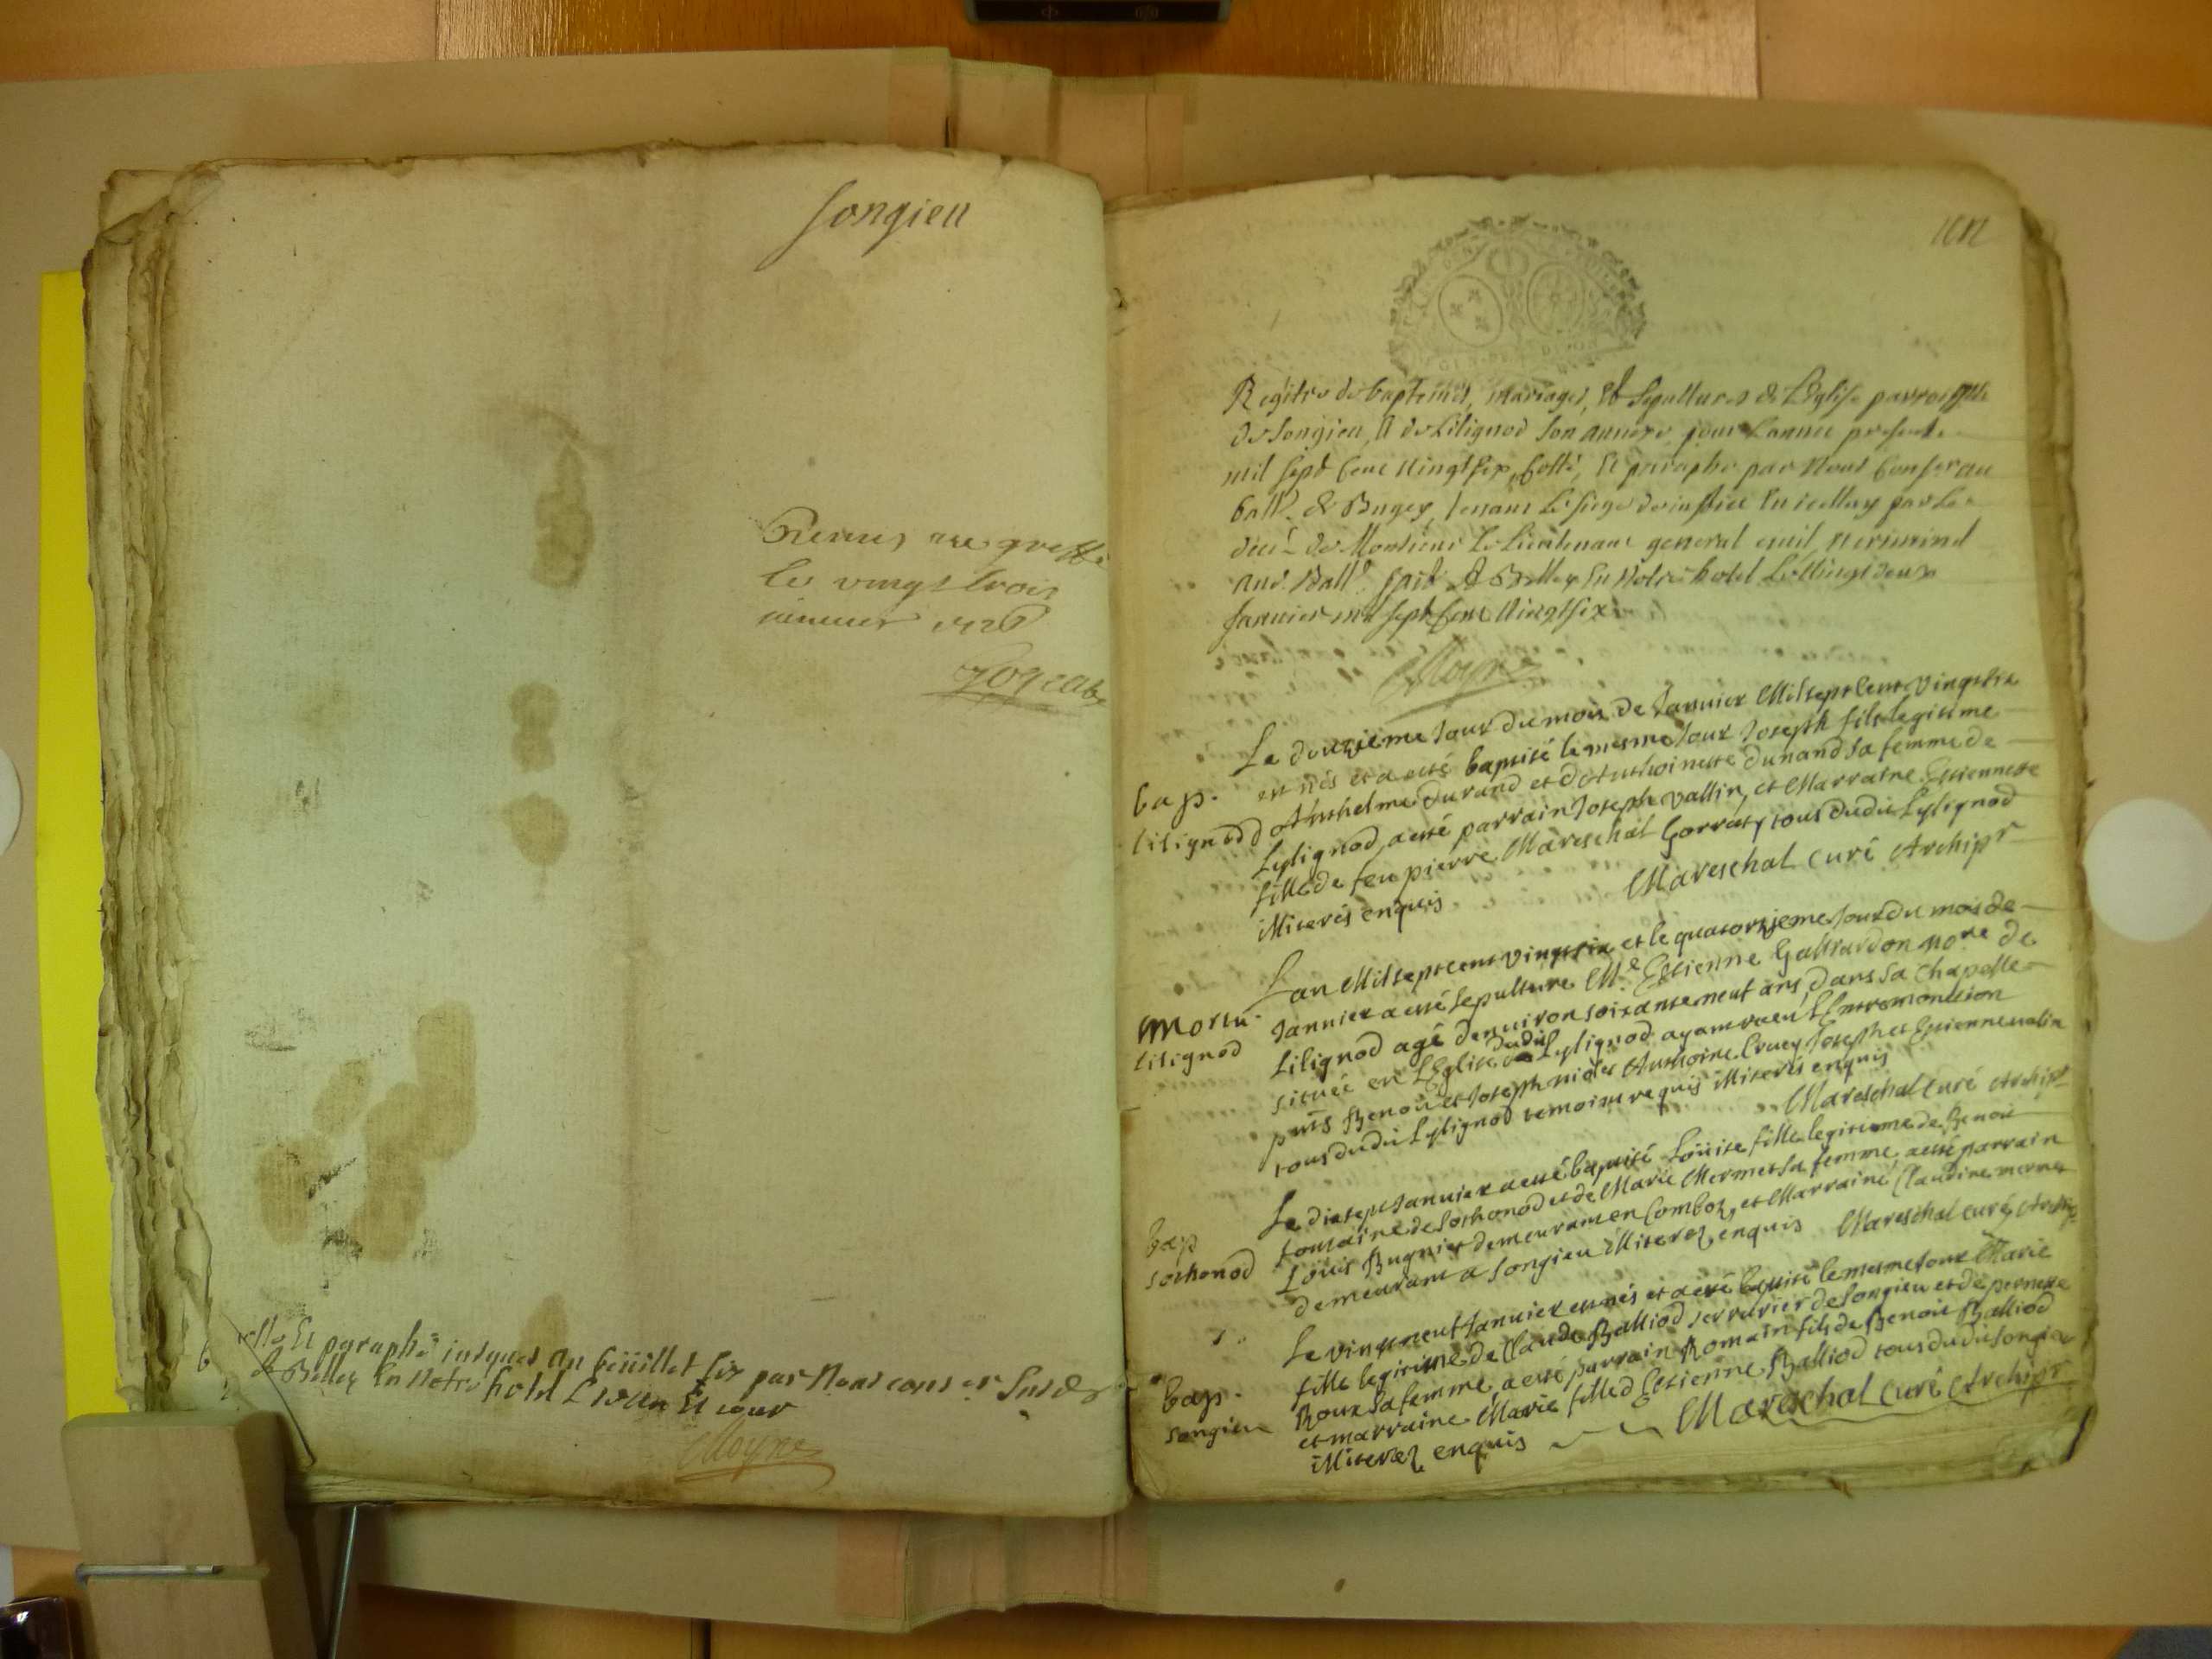 Songieu
Remis au greffe
le vingt trois
janvier
Et paraphé jusques au feüillet six par Nous
A Belley En Notre hotel Et jour
Moyne
Registre de baptemes, mariages, Et Sepultures de L'Eglise
de Songieu, Et de Lilignod son annexe pour L'année presente
mil sept Cent vingt six, Cotté, Et paraphé par Nous Conser au
ball. de Bugey, tenant Le siege de justice En icelluy par Le
de Monsieur Le Lieutenant general civil Et criminel
aud. Ball. fait A Belley En Notre hotel Le vingt deux
Janvier mil sept Cent vingt six
Moyne
Le douzieme Jour du mois de Janvier Mil sept Cent vingt six
bap. est nés et a esté baptisé le mesme Jour Joseph fils legitime
lilignod d'Anthelme Durand et d'Anthoinette Dunand sa femme de
Lylignod, a esté parrain Joseph vallin, et Marraine Estiennette
fille de feu pierre Mareschal Gorraty tous dudit Lylignod
illiterés enquis Mareschal Curé Archipr
Lan Mil sept cent vingt six et le quatorzieme Jour du mois de
mortu. Janvier a esté sepulture Me. Estienne Gallardon nore de
lilignod Lilignod agé denviron soixante neuf ans, dans sa chapelle
située en l'Eglise dudit Lylignod ayant receu l'Extremonction
pnts Benoit et Joseph nicler Anthoine Joseph et Estienne valin
tous dudit Lylignod temoins requis illiterés enquis
Mareschal Curé Archipr
Le dixsept Janvier a esté baptisé Loüise fille legitime de Benoit
bap fontaine de Sothonod et de Marie Mermet sa femme a esté parrain
sothonod Loüis Bugnier demeurant en Comboz, et Marraine Claudine mermet
demeurant a Songieu illiterez enquis Mareschal curé, Archip
Le vingt neuf Janvier est nés et a esté baptisé le mesme Jour Marie
bap. fille legitime de Claude Balliod serrurier de Songieu et de pernette
songieu Roux sa femme a esté parrain Romain fils de Benoit Balliod
et marraine Marie fille d'Estienne Balliod tous dudit Songieu
illiterez enquis Mareschal Curé Archipr